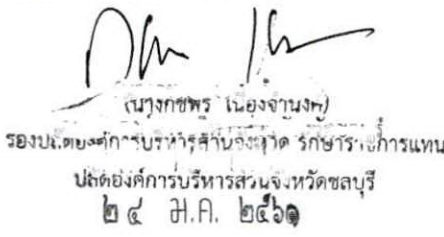 (นางกชพร เนืองจำนงค์)
รองปลัดองค์การบริหารส่วนจังหวัด รักษาราชการแทน
ปลัดองค์การบริหารส่วนจังหวัดชลบุรี
๒๔ ม.ค. ๒๕๖๑